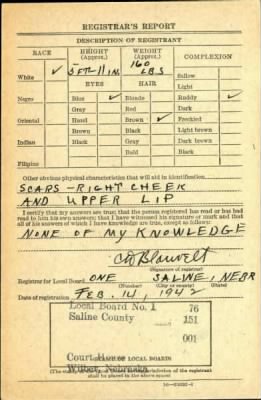 REGISTRAR'S REPORT
DESCRIPTION OF REGISTRANT
RACE HEIGHT (Approx.) WEIGHT (Approx.) COMPLEXION
White ✓ 5 FT-11 IN. 160 LBS Sallow
EYES HAIR Light
Negro Blue ✓ Blonde Ruddy ✓
Gray Red Dark
Oriental Hazel Brown ✓ Freckled
Brown Black Light brown
Indian Black Gray Dark brown
Bald Black
Filipino
Other obvious physical characteristics that will aid in identification
SCARS - RIGHT CHEEK
AND UPPER LIP
I certify that my answers are true; that the person registered has read or has had
read to him his own answers; that I have witnessed his signature or mark and that
all of his answers of which I have knowledge are true, except as follows:
NONE OF MY KNOWLEDGE
Blauvelt
(Signature of registrar)
Registrar for Local Board ONE SALINE, NEBR
(Number) (City or county) (State)
Date of registration FEB. 14, 1942
Local Board No. 1 76
Saline County 151
001
Court House
OF LOCAL BOARD)
Wilber, Nebraska
of the registration
shall be placed in the above space)